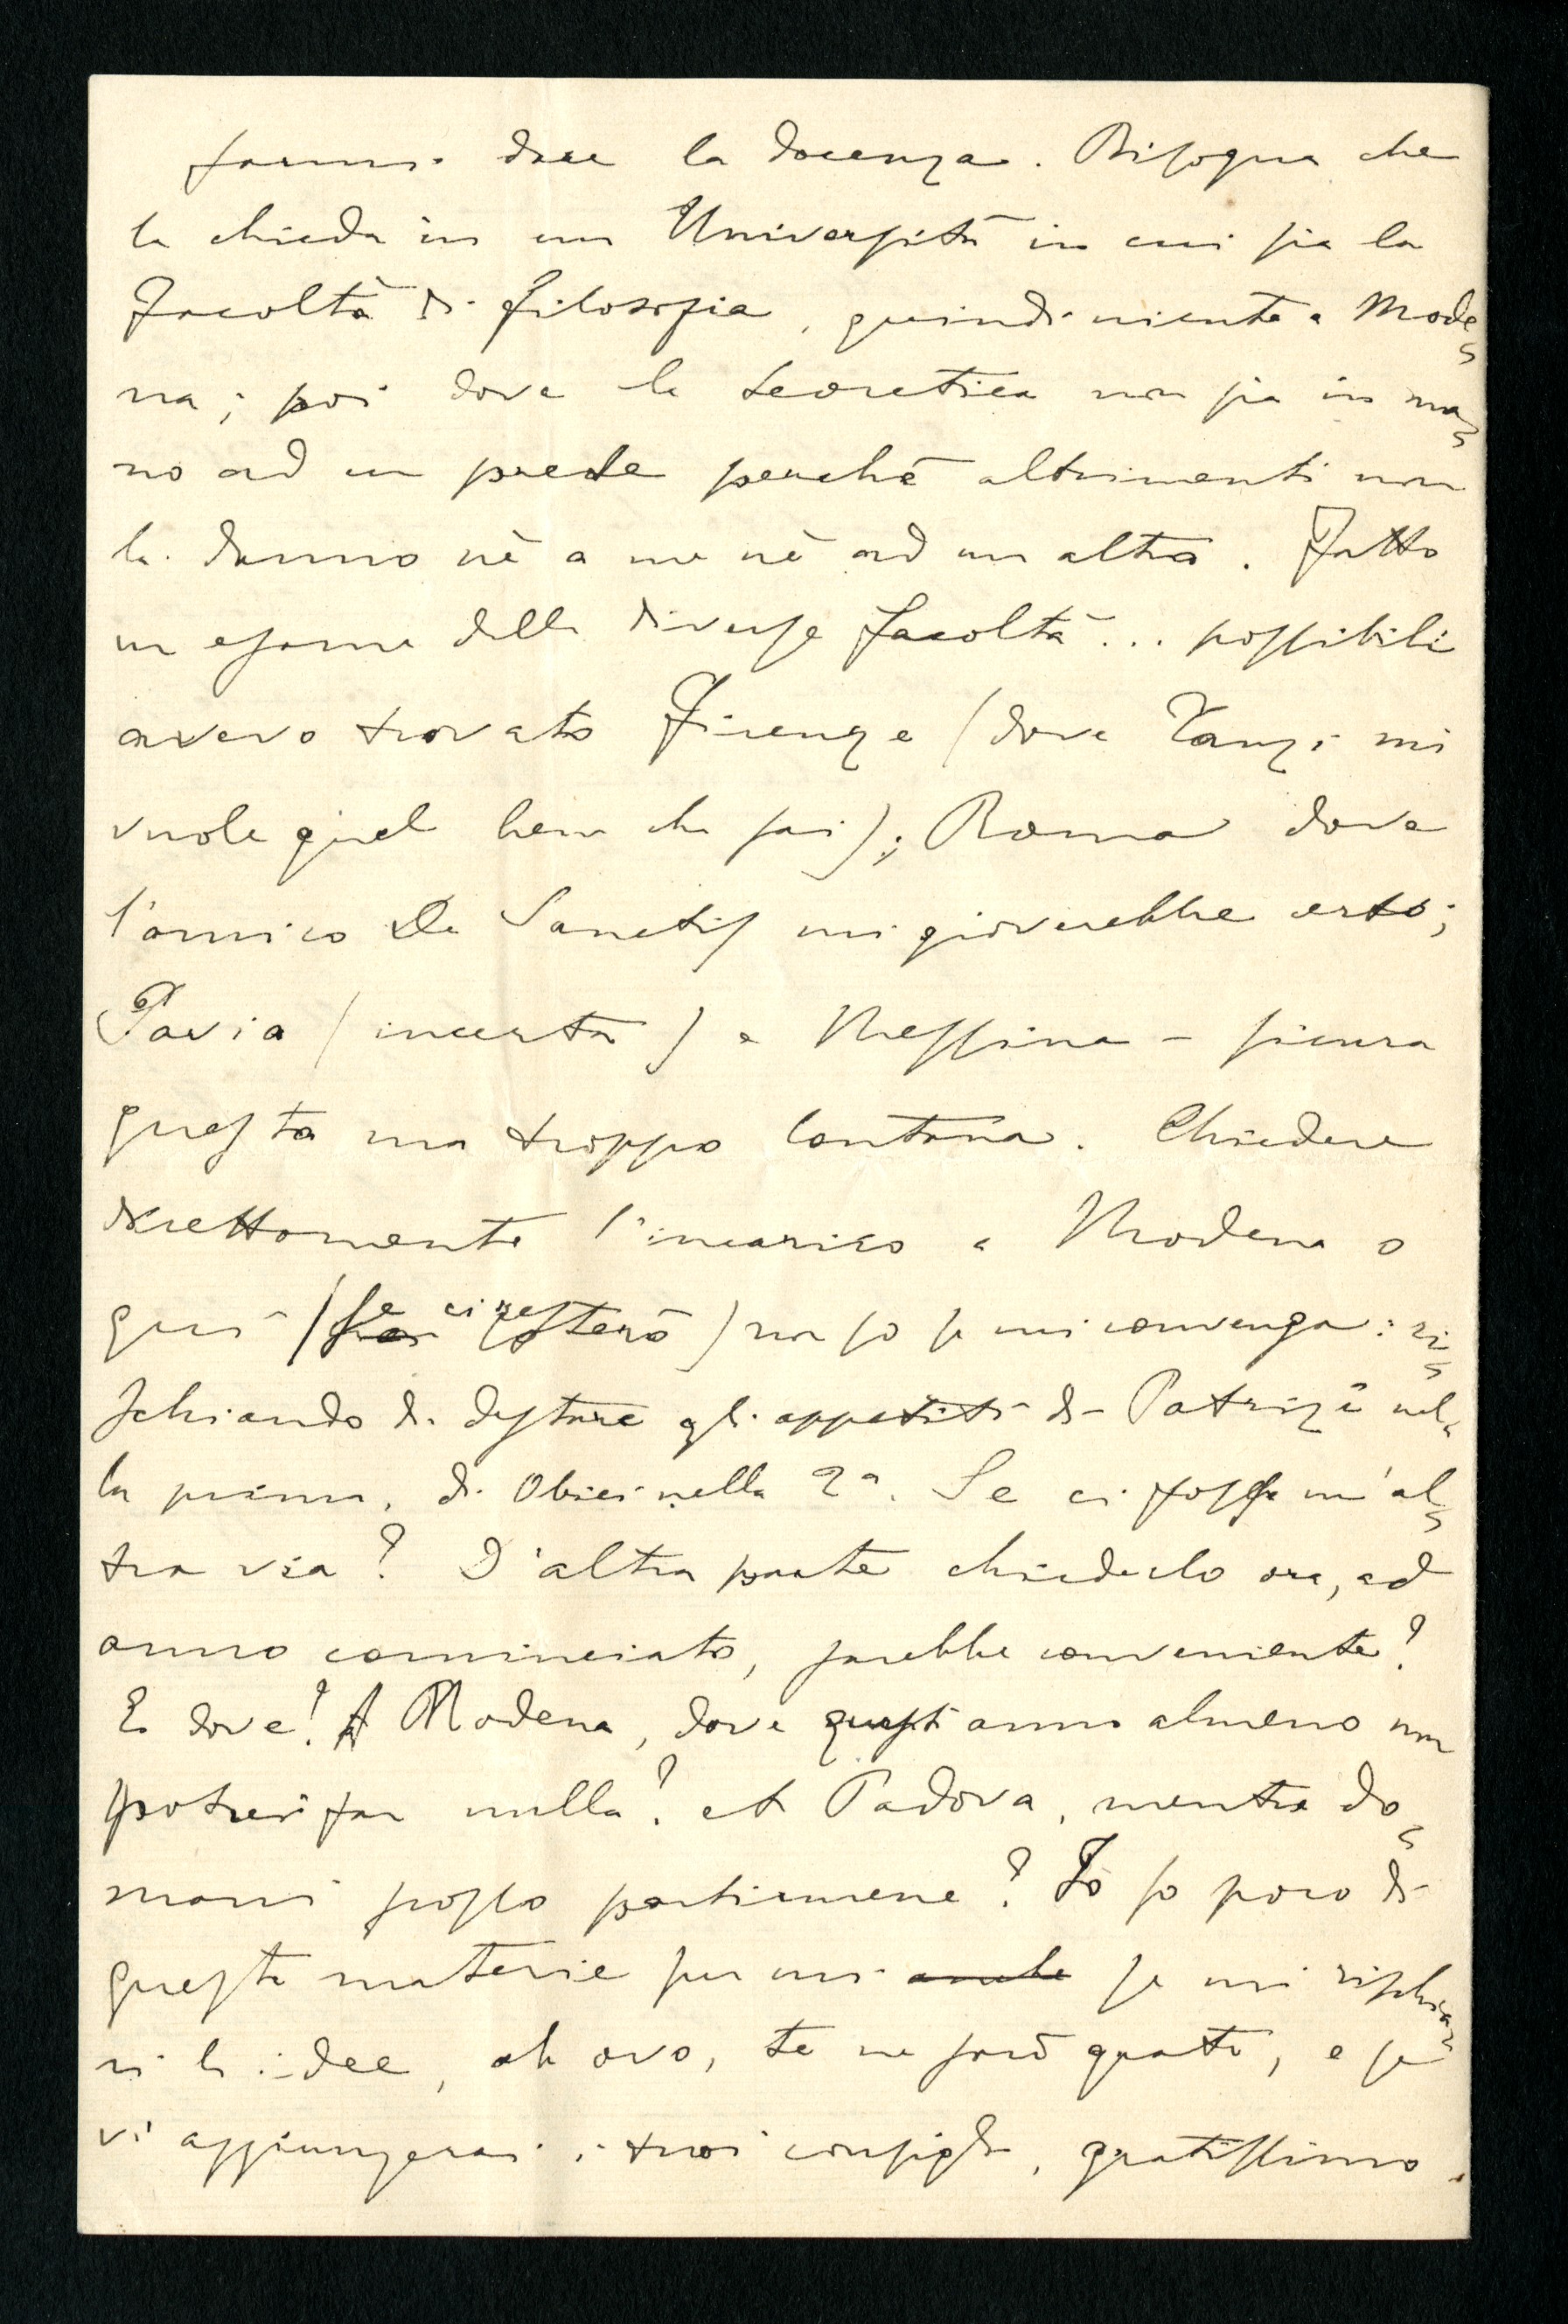 farmi dare la docenza. Bisogna che
la chieda in una Università in cui sia la
Facoltà di filosofia, quindi niente a Mode-
na; poi dove la teoretica non sia in ma-
no ad un prete perchè altrimenti non
la danno nè a me nè ad un altro. Fatto
un esame delle diverse facoltà... possibili
avevo trovato Firenze (dove Tanzi mi
vuole quel bene che sai); Roma dove
l'amico De Sanctis mi gioverebbe certo;
Pavia (incerta) e Messina - sicura
questa ma troppo lontana. Chiedere
direttamente l'incarico a Modena o
qui (se ci resterò) non so se mi convenga: ri-
schiando di destare gli appetiti di Patrizi nel-
la prima, di Obici nella 2ª. Se ci fosse un'al-
tra via? D'altra parte chiederlo ora, ad
anno cominciato, sarebbe conveniente?
E dove! A Modena, dove quest'anno almeno non
potrei far nulla? A Padova, mentre do-
mani posso partirmene? Io so poco di
queste materie per cui anche se mi rischia-
ri le idee, ab ovo, te ne sarò grato, e se
vi aggiungerai i tuoi consigli, gratissimo.